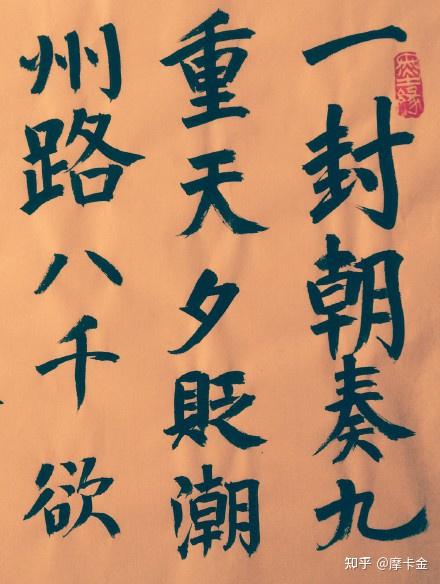 一封朝奏九
重天夕貶潮
州路八千欲
知乎 @摩卡金